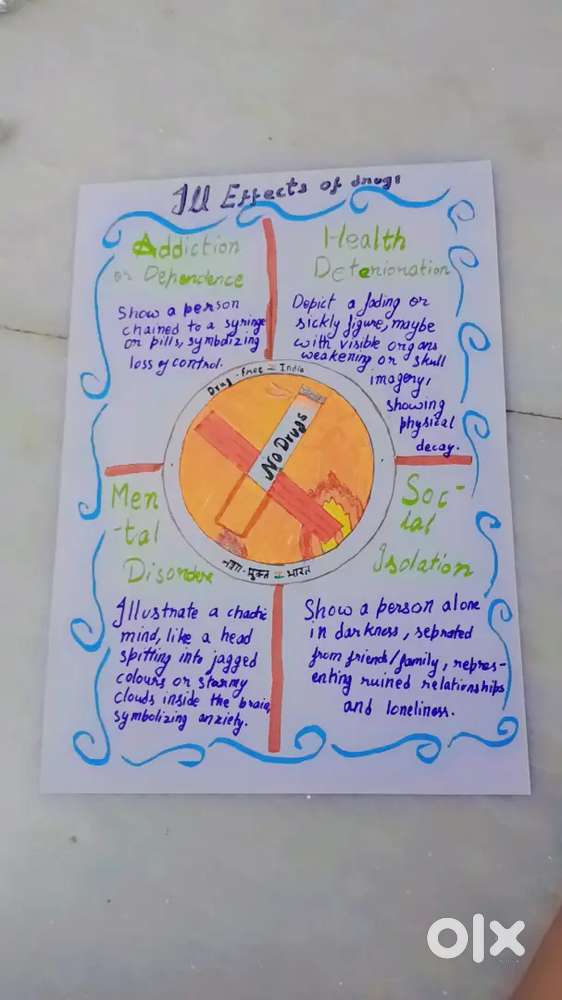 Ill Effects of drugs
Addiction
or Dependence
Show a person
chained to a syringe
or pills, symbolizing
loss of control.
Health
Deterioration
Depict a fading or
sickly figure, maybe
with visible organs
weakening or skull
imagery,
showing
physical
decay.
Drug-free = India
No Drugs
नशा-मुक्त = भारत
Men
-tal
Disorder
Illustrate a chaotic
mind, like a head
spitting into jagged
colours or stormy
clouds inside the brain,
symbolizing anxiety.
Soc-
ial
Isolation
Show a person alone
in darkness, seprated
from friends/family, repres-
enting ruined relationships
and loneliness.
olx